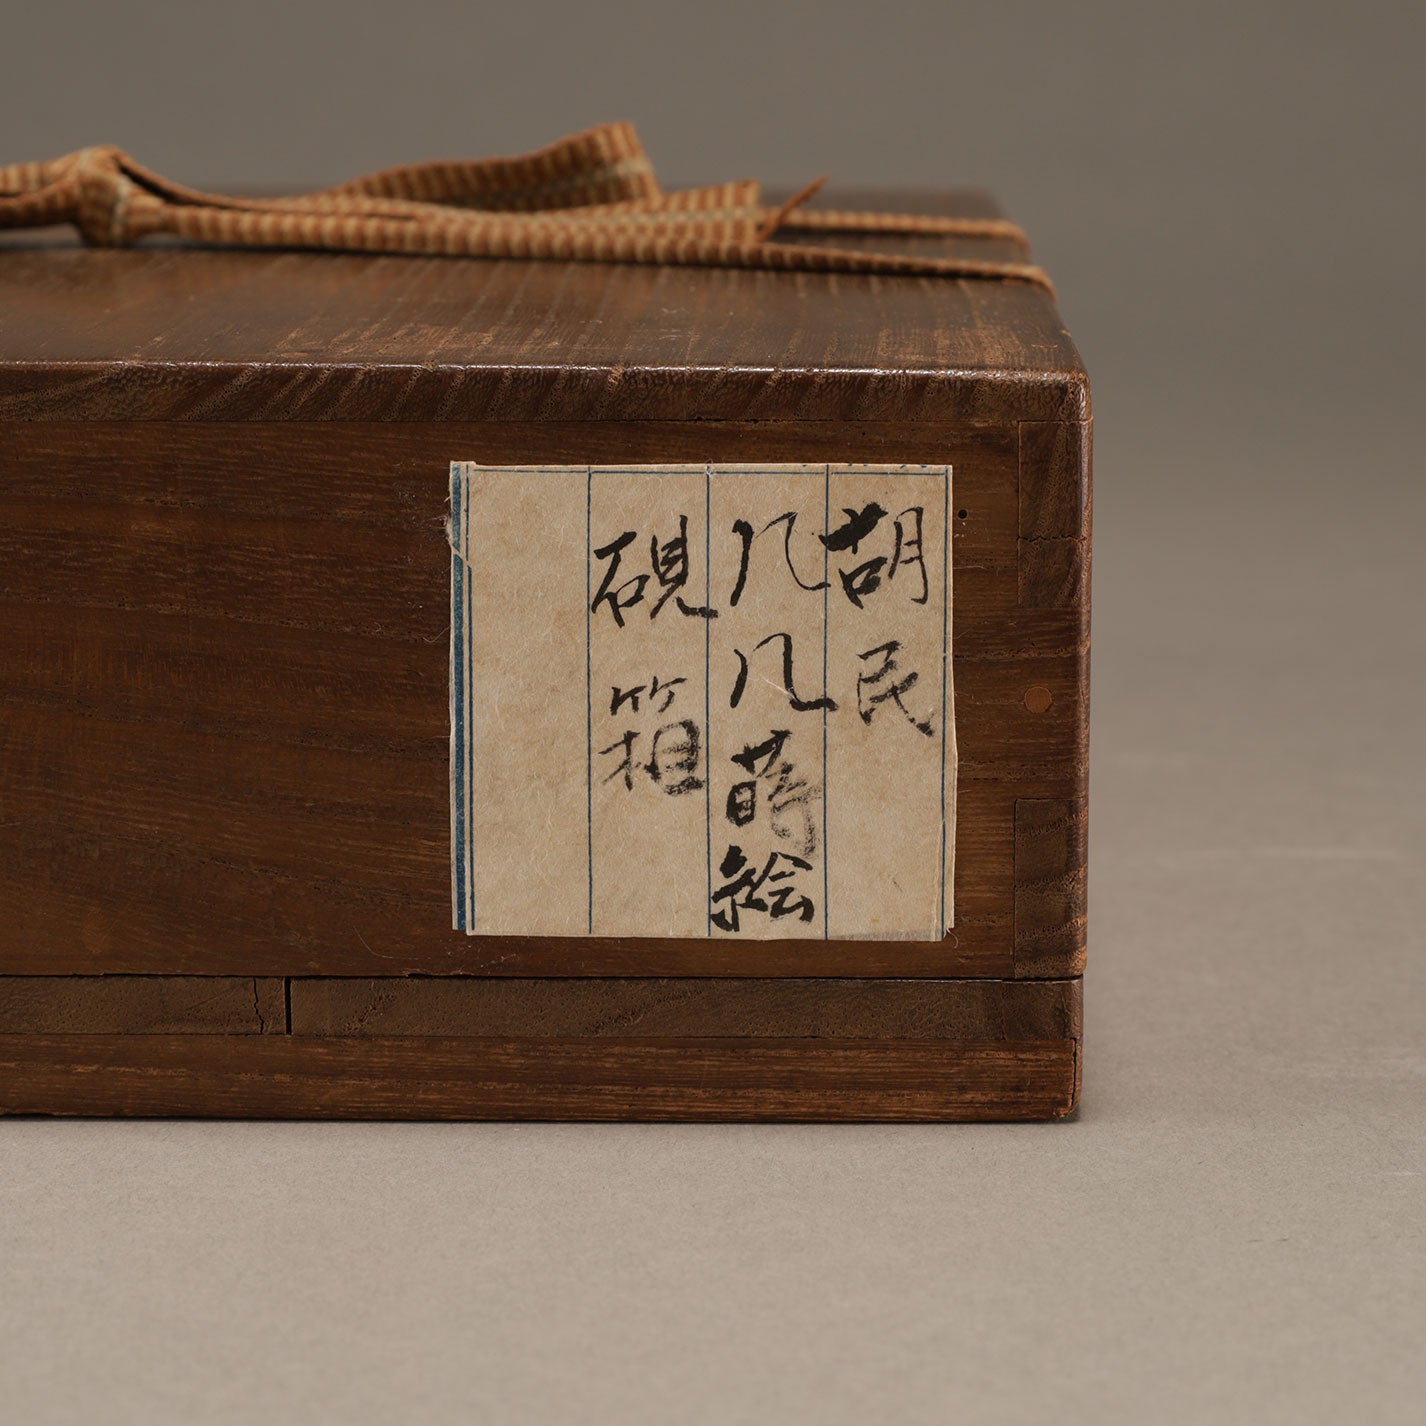 胡民
几几蒔絵
硯箱